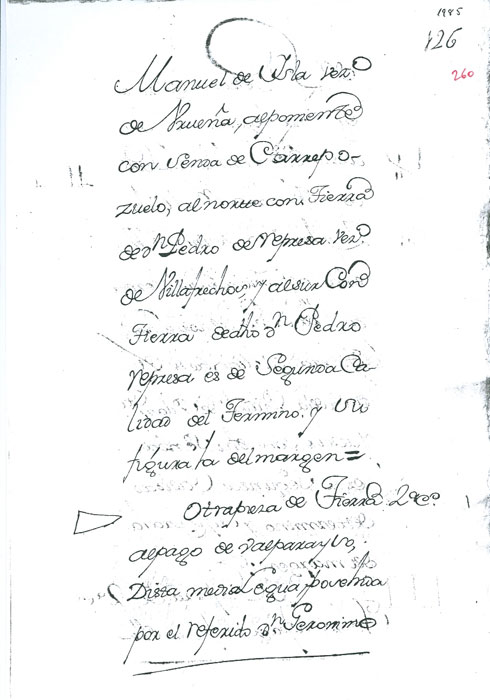 1985
126
260
Manuel de Isla vez.º
de Vrueña, alpomente
con Senda de Carrepo-
zuelo, al norue con Tierra
de dn Pedro de represa vez.º
de Villafrechos, y alsur Con
Tierra dedho Dn Pedro
represa es de Segunda Ca-
lidad del Termino. y su
figura la del margen =
Otra pieza de Tierra
alpago de
Dista media Legua posehida
por el referido Dn Geronimo